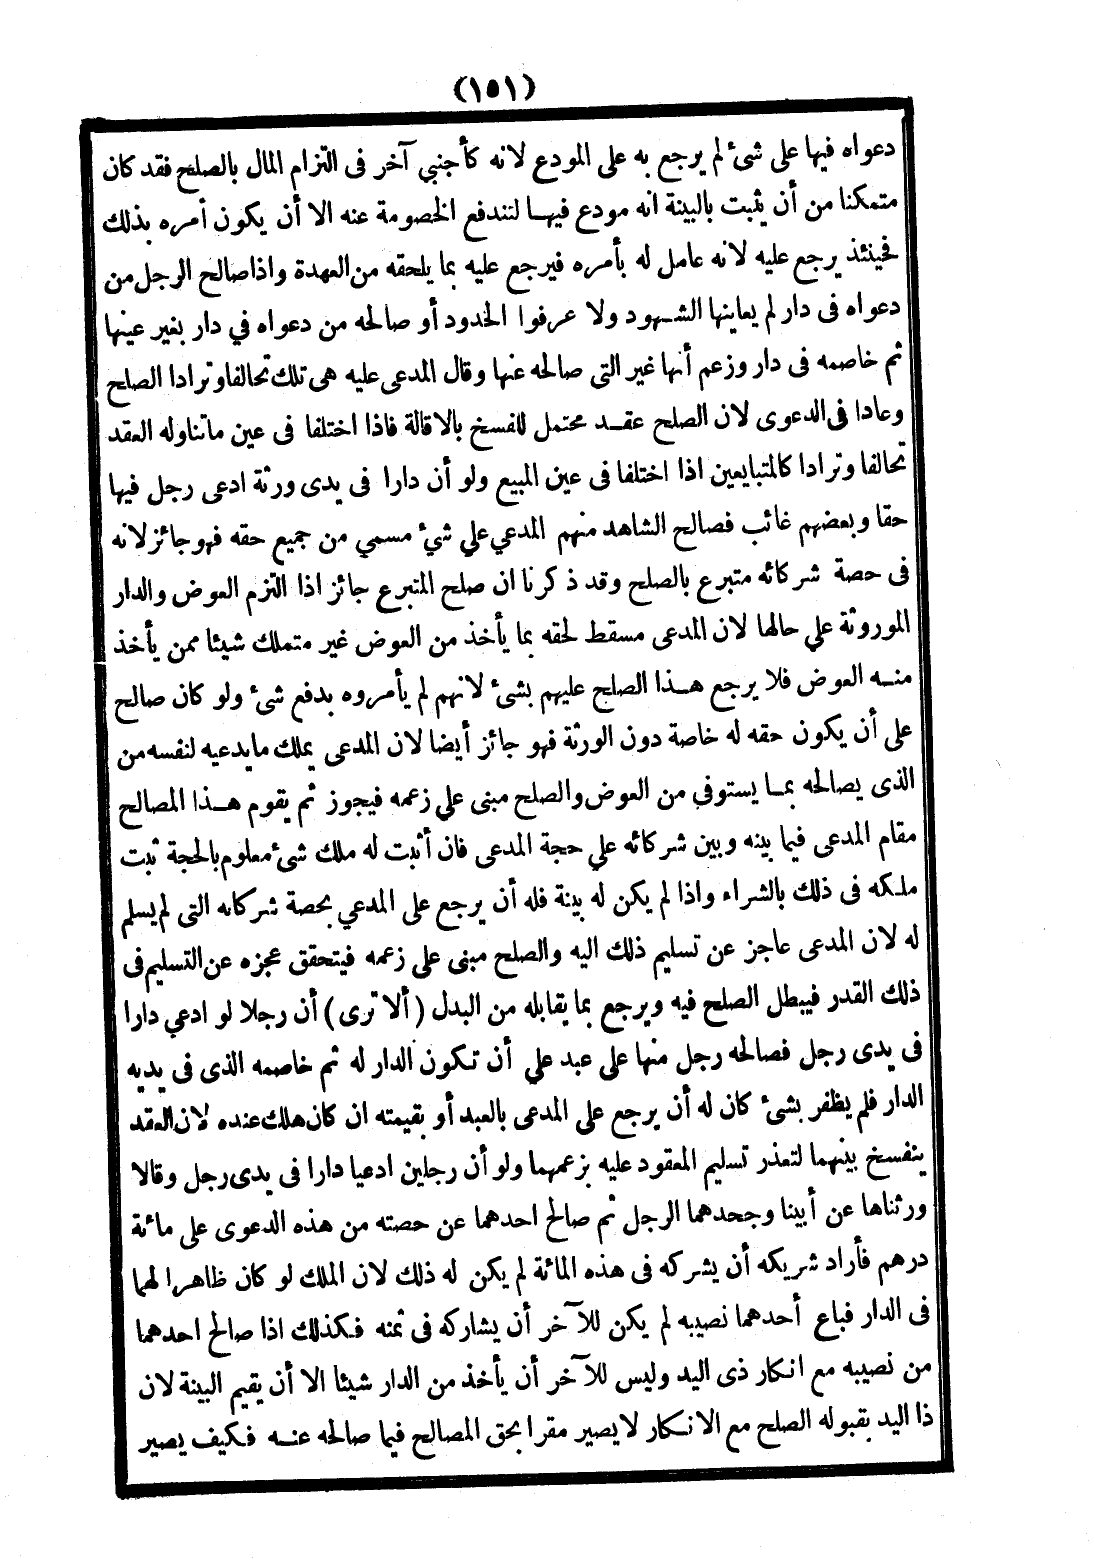 (١٥١)
دعواه فيها على شئ لم يرجع به على المودع لانه كأجنبي آخر فى التزام المال بالصلح فقد كان
متمكنا من أن يثبت بالبينة انه مودع فيها لتندفع الخصومة عنه الا أن يكون أمره بذلك
فحينئذ يرجع عليه لانه عامل له بأمره فيرجع عليه بما يلحقه من العهدة واذا صالح الرجل من
دعواه فى دار لم يعاينها الشهود ولا عرفوا الحدود أو صالحه من دعواه في دار بغير عينها
ثم خاصمه فى دار وزعم أنها غير التى صالحه عنها وقال المدعى عليه هى تلك تحالفا وترادا الصلح
وعادا فى الدعوى لان الصلح عقد محتمل للفسخ بالاقالة فاذا اختلفا فى عين ماتناوله العقد
تحالفا وترادا كالمتبايعين اذا اختلفا فى عين المبيع ولو أن دارا فى يدى ورثة ادعى رجل فيها
حقا وبعضهم غائب فصالح الشاهد منهم المدعي علي شئ مسمي من جميع حقه فهو جائز لانه
فى حصة شركائه متبرع بالصلح وقد ذكرنا ان صلح المتبرع جائز اذا التزم العوض والدار
الموروثة علي حالها لان المدعى مسقط لحقه بما يأخذ من العوض غير متملك شيئا ممن يأخذ
منه العوض فلا يرجع هذا الصلح عليهم بشئ لانهم لم يأمروه بدفع شئ ولو كان صالح
على أن يكون حقه له خاصة دون الورثة فهو جائز أيضا لان المدعى يملك مايدعيه لنفسه من
الذى يصالحه بما يستوفي من العوض والصلح مبنى علي زعمه فيجوز ثم يقوم هذا المصالح
مقام المدعى فيما بينه وبين شركائه علي حجة المدعى فان أثبت له ملك شئ معلوم بالحجة ثبت
ملكه فى ذلك بالشراء واذا لم يكن له بينة فله أن يرجع على المدعي بحصة شركائه التى لم يسلم
له لان المدعى عاجز عن تسليم ذلك اليه والصلح مبنى على زعمه فيتحقق عجزه عن التسليم فى
ذلك القدر فيبطل الصلح فيه ويرجع بما يقابله من البدل (ألا ترى) أن رجلا لو ادعي دارا
فى يدى رجل فصالحه رجل منها على عبد علي أن تكون الدار له ثم خاصمه الذى فى يديه
الدار فلم يظفر بشئ كان له أن يرجع على المدعى بالعبد أو بقيمته ان كان هلك عنده لان العقد
ينفسخ بينهما لتعذر تسليم المعقود عليه بزعمهما ولو أن رجلين ادعيا دارا فى يدى رجل وقالا
ورثناها عن أبينا وجحدهما الرجل ثم صالح احدهما عن حصته من هذه الدعوى على مائة
درهم فأراد شريكه أن يشركه فى هذه المائة لم يكن له ذلك لان الملك لو كان ظاهرا لهما
فى الدار فباع أحدهما نصيبه لم يكن للآخر أن يشاركه فى ثمنه فكذلك اذا صالح احدهما
من نصيبه مع انكار ذى اليد وليس للآخر أن يأخذ من الدار شيئا الا أن يقيم البينة لان
ذا اليد بقبوله الصلح مع الانكار لايصير مقرا بحق المصالح فيما صالحه عنه فكيف يصير